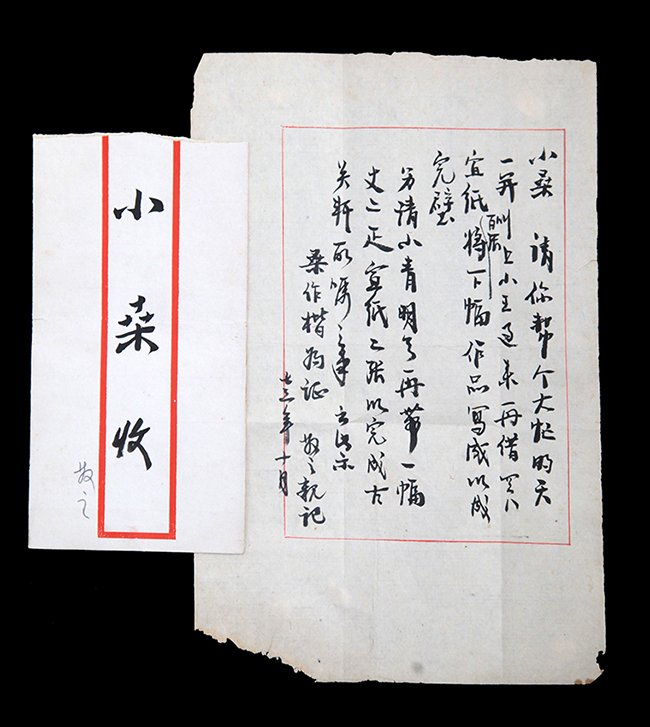 小桑收
散之
小桑 请你帮个大忙明天
一并 上小王过来再借四八
宣纸 将下幅作品写成以成
完壁
另请小青明天再带一幅
丈二疋宣纸二张以完成古
关轩所嘱之 
桑作楷为证 散之亲记
七三年十月